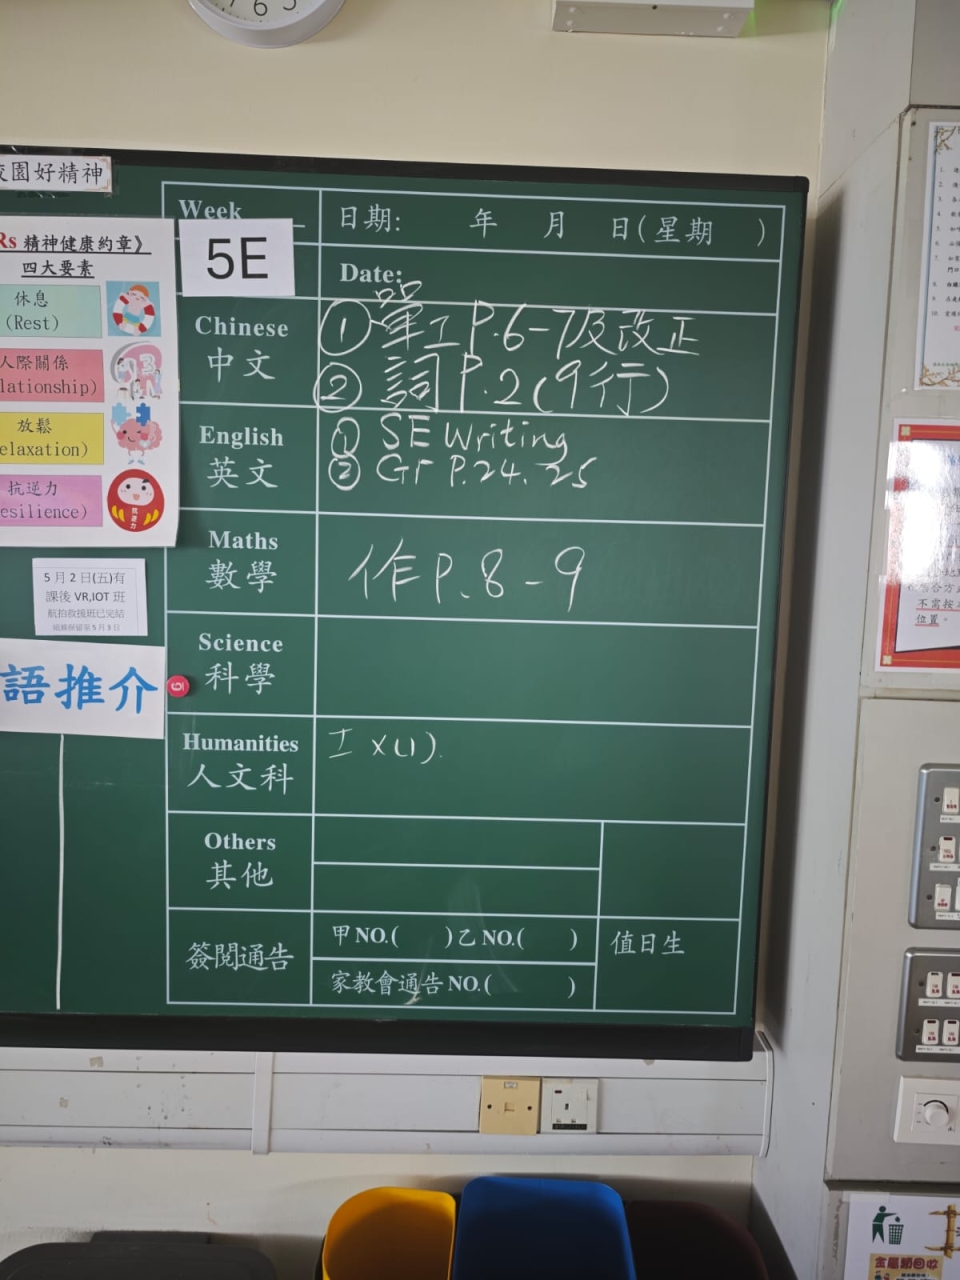 6 5
校園好精神
Rs 精神健康約章》
四大要素
休息
(Rest)
人際關係
lationship)
放鬆
elaxation)
抗逆力
esilience)
抗逆力
5月2日(五)有
課後 VR,IOT 班
航拍救援班已完結
語推介
Week
5E
日期: 年 月 日(星期 )
Date:
Chinese
中文
① 單工 P.6-7及改正
② 詞 P.2 (9行)
English
英文
① SE Writing
② Gr P.24. 25
Maths
數學
作 P.8-9
Science
科學
Humanities
人文科
工 X(1).
Others
其他
簽閱通告
甲NO.( )乙NO.( )
家教會通告NO.( )
值日生
不需按
位置。
金屬類回收